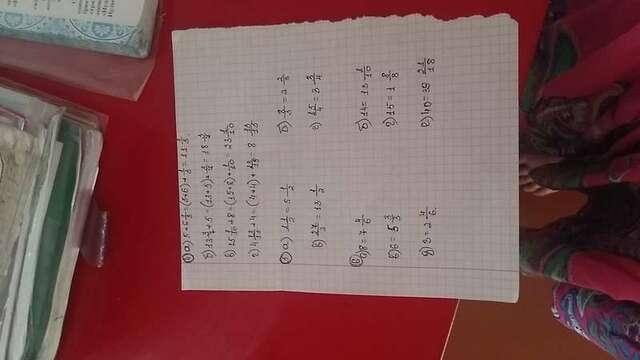 а) 5+6 1/5=(5+6)+1/5=11 1/5.
б) 13 3/4+5=(13+5)+3/4=18 3/4
в) 15 1/10+8=(15+8)+1/10=23 1/10
г) 4 13/15+4=(4+4)+13/15=8 13/15
а) 11/2=5 1/2 б) 8/3=2 2/3
в) 27/2=13 1/2 г) 15/4=3 3/4
6 а) 8=7 4/6 б) 14=13 1/10
в) 6=5 3/3 г) 15=1 8/8
д) 3=2 4/6. е) 40=39 21/18